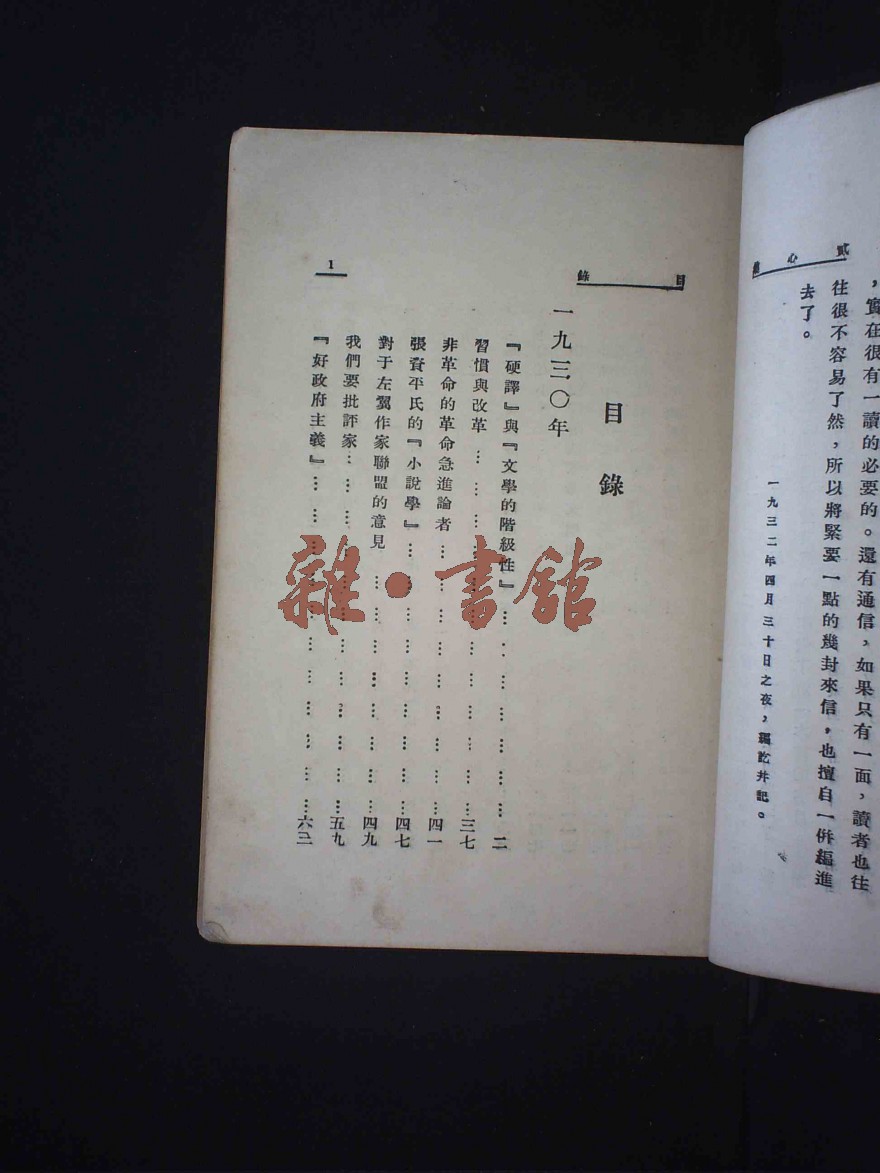 貳心
，實在很有一讀的必要的。還有通信，如果只有一面，讀者也往
往很不容易了然，所以將緊要一點的幾封來信，也擅自一併編進
去了。
一九三二年四月三十日之夜，編訖并記。
目錄
1
目錄
一九三〇年
『硬譯』與『文學的階級性』……………………二
習慣與改革……………………三七
非革命的革命急進論者……………………四一
張資平氏的『小說學』……………………四七
對于左翼作家聯盟的意見……………………四九
我們要批評家……………………五九
『好政府主義』……………………六二
雜·書館